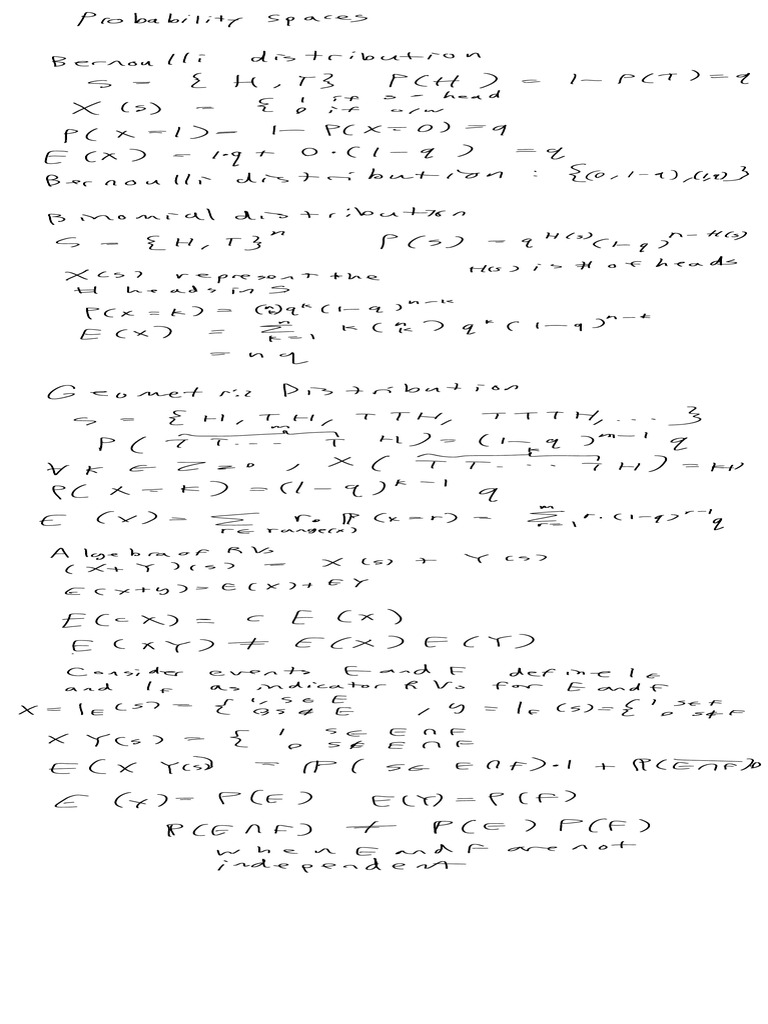 Probability spaces
Bernoulli distribution
S = {H, T} P(H) = 1 - P(T) = q
X(s) = { 1 if s = head
0 if o/w
P(X=1) = 1 - P(X=0) = q
E(X) = 1·q + 0·(1-q) = q
Bernoulli distribution : {(0, 1-q), (1, q)}
Binomial distribution
S = {H, T}^n P(s) = q^H(s) (1-q)^n-H(s)
X(s) represent the H(s) is # of heads
# heads in S
P(X=k) = (n k) q^k (1-q)^n-k
E(X) = Σ_{k=1}^n k (n k) q^k (1-q)^n-k
= nq
Geometric Distribution
S = {H, TH, TTH, TTTH, ...}
P(TT...T H) = (1-q)^m-1 q
∀ k ∈ Z=0, X(TT...TH) = k
P(X=k) = (1-q)^k-1 q
E(X) = Σ_{r∈range(x)} r·P(x=r) = Σ_{r=1}^m r·(1-q)^r-1 q
Algebra of RVs
(X+Y)(s) = X(s) + Y(s)
E(x+y) = E(x) + EY
E(cX) = c E(X)
E(XY) ≠ E(X)E(Y)
Consider events E and F define I_E
and I_F as indicator RVs for E and F
X = I_E(s) = { 1, s∈E , y = I_F(s) = { 1 s∈F
0 s∉E 0 s∉F
XY(s) = { 1, s∈ E∩F
0 s∉ E∩F
E(XY(s)) = P(s∈ E∩F)·1 + P(\overline{E∩F})0
E(X) = P(E) E(Y) = P(F)
P(E∩F) ≠ P(E)P(F)
when E and F are not
independent